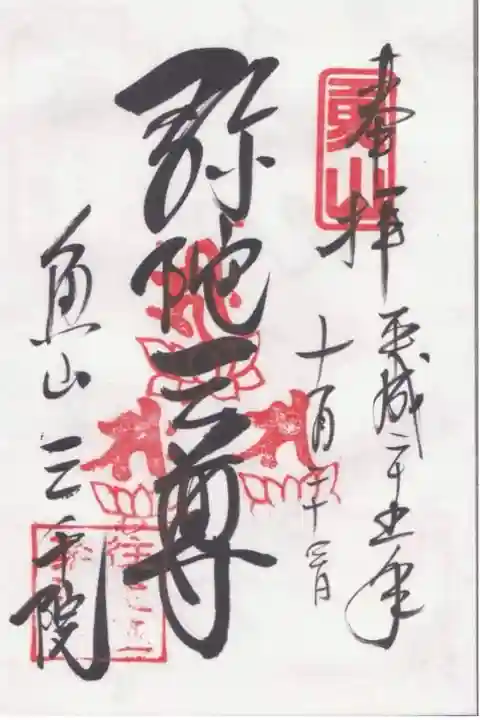 奉拝
平成二十五年
十月二十四日
弥陀三尊
魚山 三千院
魚山